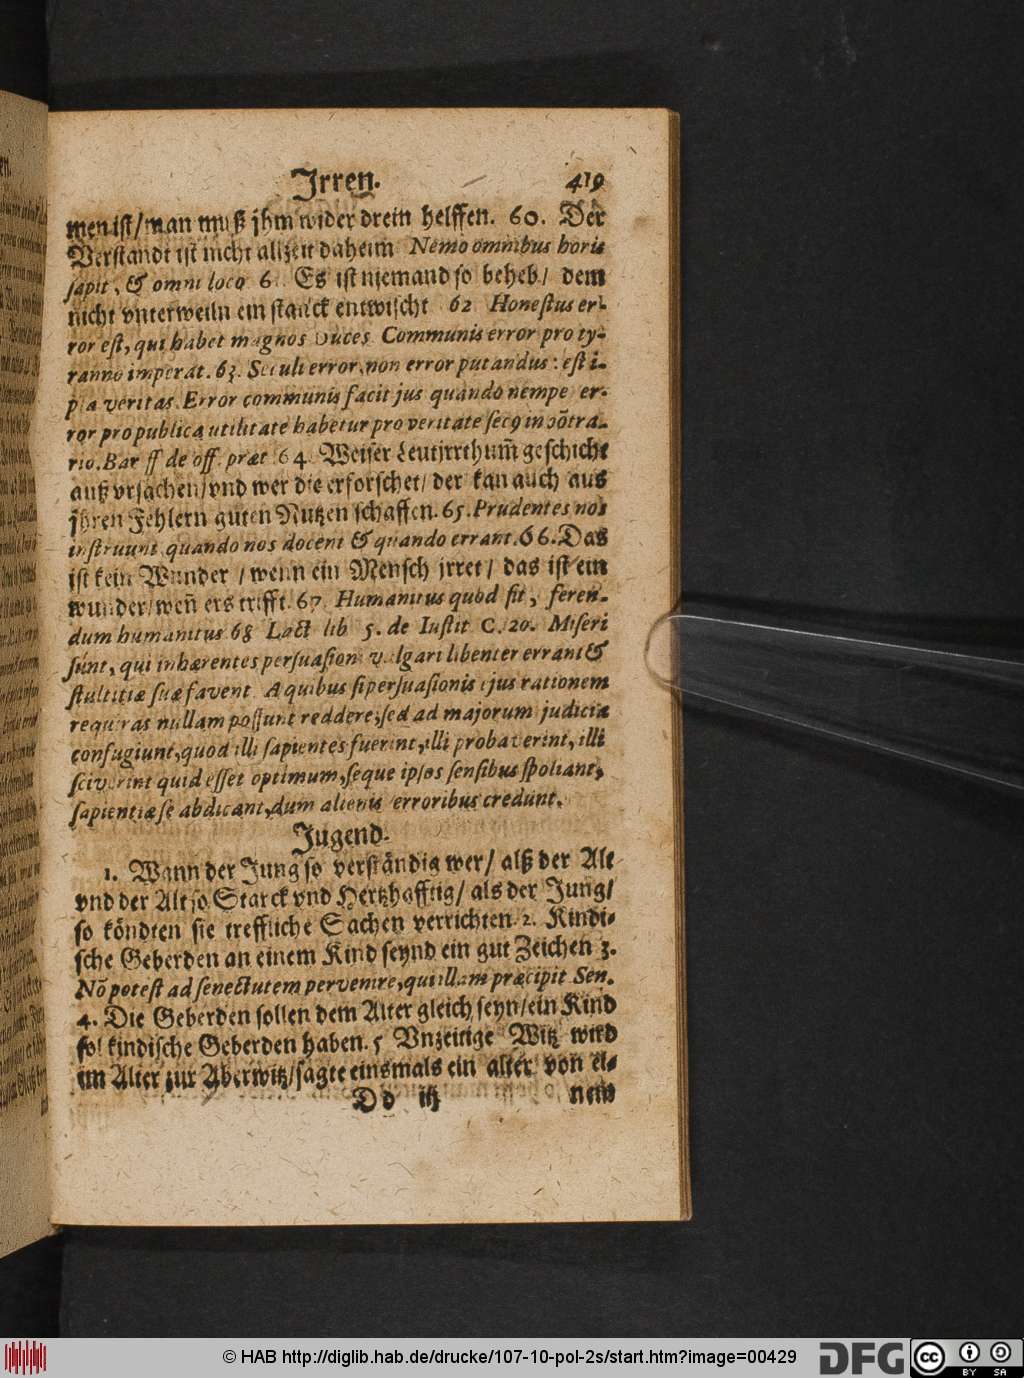 Irren. 419
men ist/ man muß jhm wider drein helffen. 60. Der
Verstandt ist nicht allzeit daheim Nemo omnibus horis
sapit, & omni loco 6 . Es ist niemand so beheb/ dem
nicht vnterweiln ein stanck entwischt 62 Honestus er-
ror est, qui habet magnos Duces Communis error pro ty-
ranno imperat. 63. Seculi error, non error putandus: est i-
psa veritas. Error communis facit jus quando nempe er-
ror pro publica utilitate habetur pro veritate secꝰ in cõtra-
rio. Bar ff de off. præt 64. Weiser Leut jrrthum̃ geschicht
auß vrsachen/ vnd wer die erforschet/ der kan auch aus
jhren Fehlern guten Nutzen schaffen. 65. Prudentes nos
instruunt quando nos docent & quando errant. 66. Das
ist kein Wunder / wenn ein Mensch jrret/ das ist ein
wunder/ weñ ers trifft. 67. Humanitus quod fit, feren-
dum humanitus 68 Lact lib 5. de Iustit C. 20. Miseri
sunt, qui inhærentes persuasioni vulgari libenter errant &
stultitiæ suæ favent. A quibus si persuasionis ejus rationem
requiras nullam possunt reddere, sed ad majorum judicia
confugiunt, quod illi sapientes fuerint, illi probaverint, illi
sciverint quid esset optimum, seque ipsos sensibus spoliant,
sapientiæ se abdicant, dum alienis erroribus credunt.
Jugend.
1. Wann der Jung so verständig wer/ alß der Alt
vnd der Alt so Starck vnd Hertzhafftig/ als der Jung/
so köndten sie treffliche Sachen verrichten. 2. Kindi-
sche Geberden an einem Kind seynd ein gut Zeichen 3.
Nõ potest ad senectutem pervenire, qui illam præcipit Sen.
4. Die Geberden sollen dem Alter gleich seyn/ ein Kind
sol kindische Geberden haben. 5 Vnzeitige Witz wird
im Alter zur Aberwitz/ sagte einsmals ein alter von ei-
Dd iij nem
© HAB http://diglib.hab.de/drucke/107-10-pol-2s/start.htm?image=00429
DFG
cc BY SA